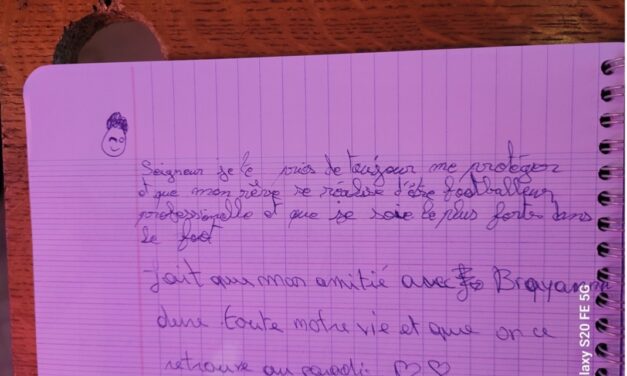 Seigneur je te pris de toujour me protéger
et que mon rêve se réalise d'être footballeur
professionelle et que je soie le plus forte dans
le foot
fait que mon amitié avec Brayan
dure toute notre vie et que on ce
retrouve au paradi ♡♡
laxy S20 FE 5G